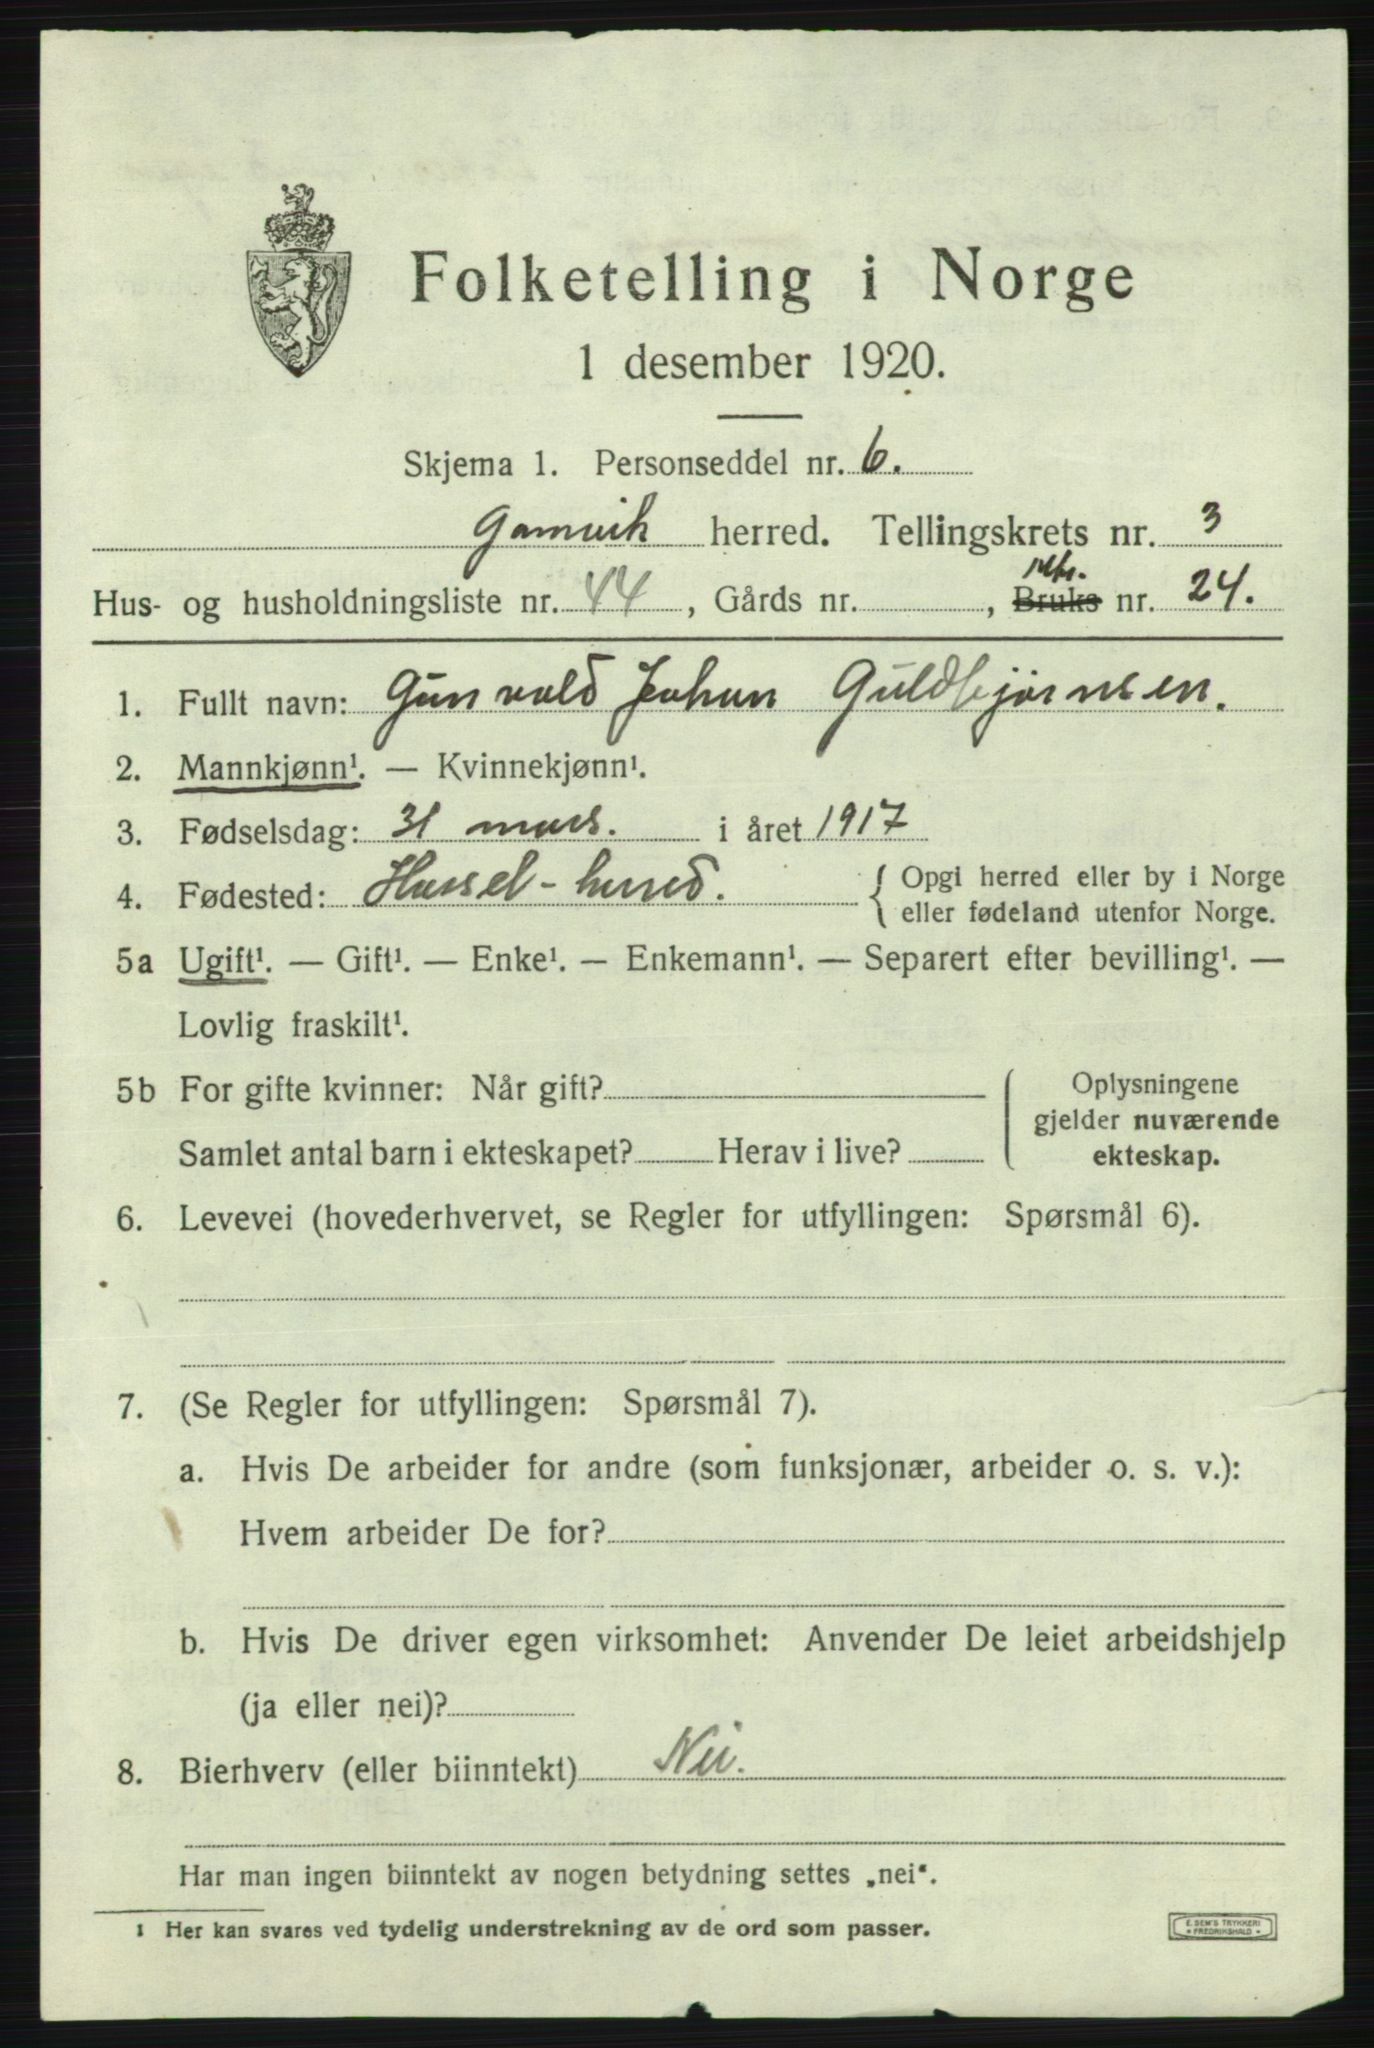 Folketelling i Norge
1 desember 1920.
Skjema 1. Personseddel nr. 6.
Gamvik herred. Tellingskrets nr. 3
Hus- og husholdningsliste nr. 44, Gårds nr. , Bruks nr. 24.
1. Fullt navn: Gunvald Johan Guldbjørnsen.
2. Mannkjønn¹. — Kvinnekjønn¹.
3. Fødselsdag: 31 mars. i året 1917
4. Fødested: Hassel - herred. { Opgi herred eller by i Norge
eller fødeland utenfor Norge.
5a Ugift¹. — Gift¹. — Enke¹. — Enkemann¹. — Separert efter bevilling¹. —
Lovlig fraskilt¹.
5b For gifte kvinner: Når gift?
Samlet antal barn i ekteskapet? Herav i live?
Oplysningene
gjelder nuværende
ekteskap.
6. Levevei (hovederhvervet, se Regler for utfyllingen: Spørsmål 6).
7. (Se Regler for utfyllingen: Spørsmål 7).
a. Hvis De arbeider for andre (som funksjonær, arbeider o. s. v.):
Hvem arbeider De for?
b. Hvis De driver egen virksomhet: Anvender De leiet arbeidshjelp
(ja eller nei)?
8. Bierhverv (eller biinntekt) Nei.
Har man ingen biinntekt av nogen betydning settes „nei“.
1 Her kan svares ved tydelig understrekning av de ord som passer.
E. SEM'S TRYKKERI
FREDRIKSHALD